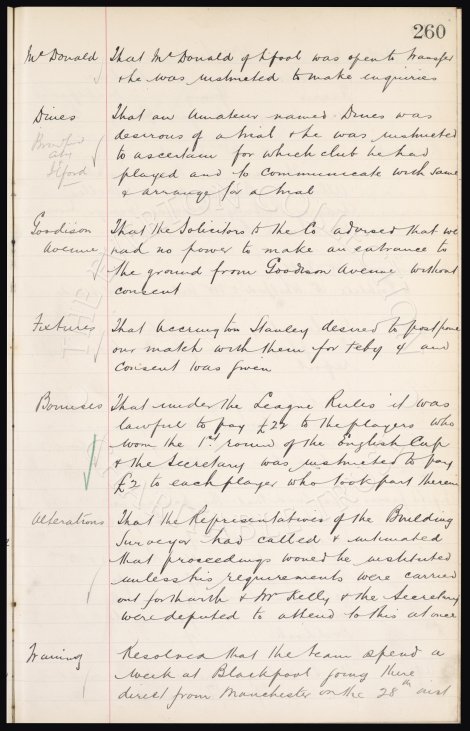 260
McDonald That McDonald of L'pool was open to transfer
& he was instructed to make inquiries
Dines That an amateur named Dines was
desirous of a trial & he was instructed
to ascertain for which club he had
played and to communicate with same
& arrange for a trial
Ilford
Goodison Avenue That the Solicitors to the Co advised that we
had no power to make an entrance to
the ground from Goodison Avenue without
consent
Fixtures That Accrington Stanley desired to postpone
our match with them for Feby 4 and
consent was given
Bonuses That under the League Rules it was
lawful to pay £2 to the players who
won the 1st round of the English Cup
& the Secretary was instructed to pay
£2 to each player who took part therein
Alterations That the Representatives of the Building
Surveyor had called & intimated
that proceedings would be instituted
unless his requirements were carried
out forthwith & Mr Kelly & the Secretary
were deputed to attend to this at once
Training Resolved that the team spend a
week at Blackpool going there
direct from Manchester on the 28th inst